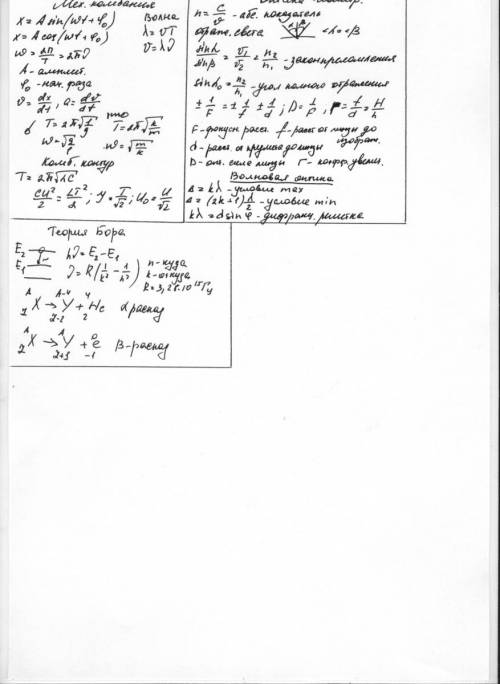 Мех. колебания
x = A sin(wt + φ₀)
x = A cos(wt + φ₀)
w = 2π/T = 2πν
A - амплит.
φ₀ - нач. фаза
v = dx/dt, a = dv/dt
T = 2π√
T = 2π√(k/m)
w = √(g/l)
w = √(m/k)
Волна
λ = vT
v = λν
Колеб. контур
T = 2π√LC
CU²/2 = LI²/2; I/√2; U/√2
n = c/v - абс. показатель
света
<α = <β
sinα/sinβ = v₁/v₂ = n₂/n₁ - закон преломления
sinα₀ = n₂/n₁ - угол полного отражения
± 1/F = ± 1/f ± 1/d; D = 1/F; Г = f/d = H/h
F - фокусн. расст. f - расст. от линзы до
изображ.
d - расст. от до линзы
D - опт. сила линзы Г - коэфф. увелич.
Волновая оптика
Δ = kλ - условие max
Δ = (2k+1) λ/2 - условие min
kλ = d sin φ - дифракц. решетка
Теория Бора
E₂
E₁
hν = E₂ - E₁
ν = R(1/k² - 1/n²)
n - куда
k - откуда
R = 3,28·10¹⁵ Гц
ᴬX → ᴬ⁻⁴Y + ⁴₂He α распад
ᴬX → ᴬY + ⁰₋₁e β-распад